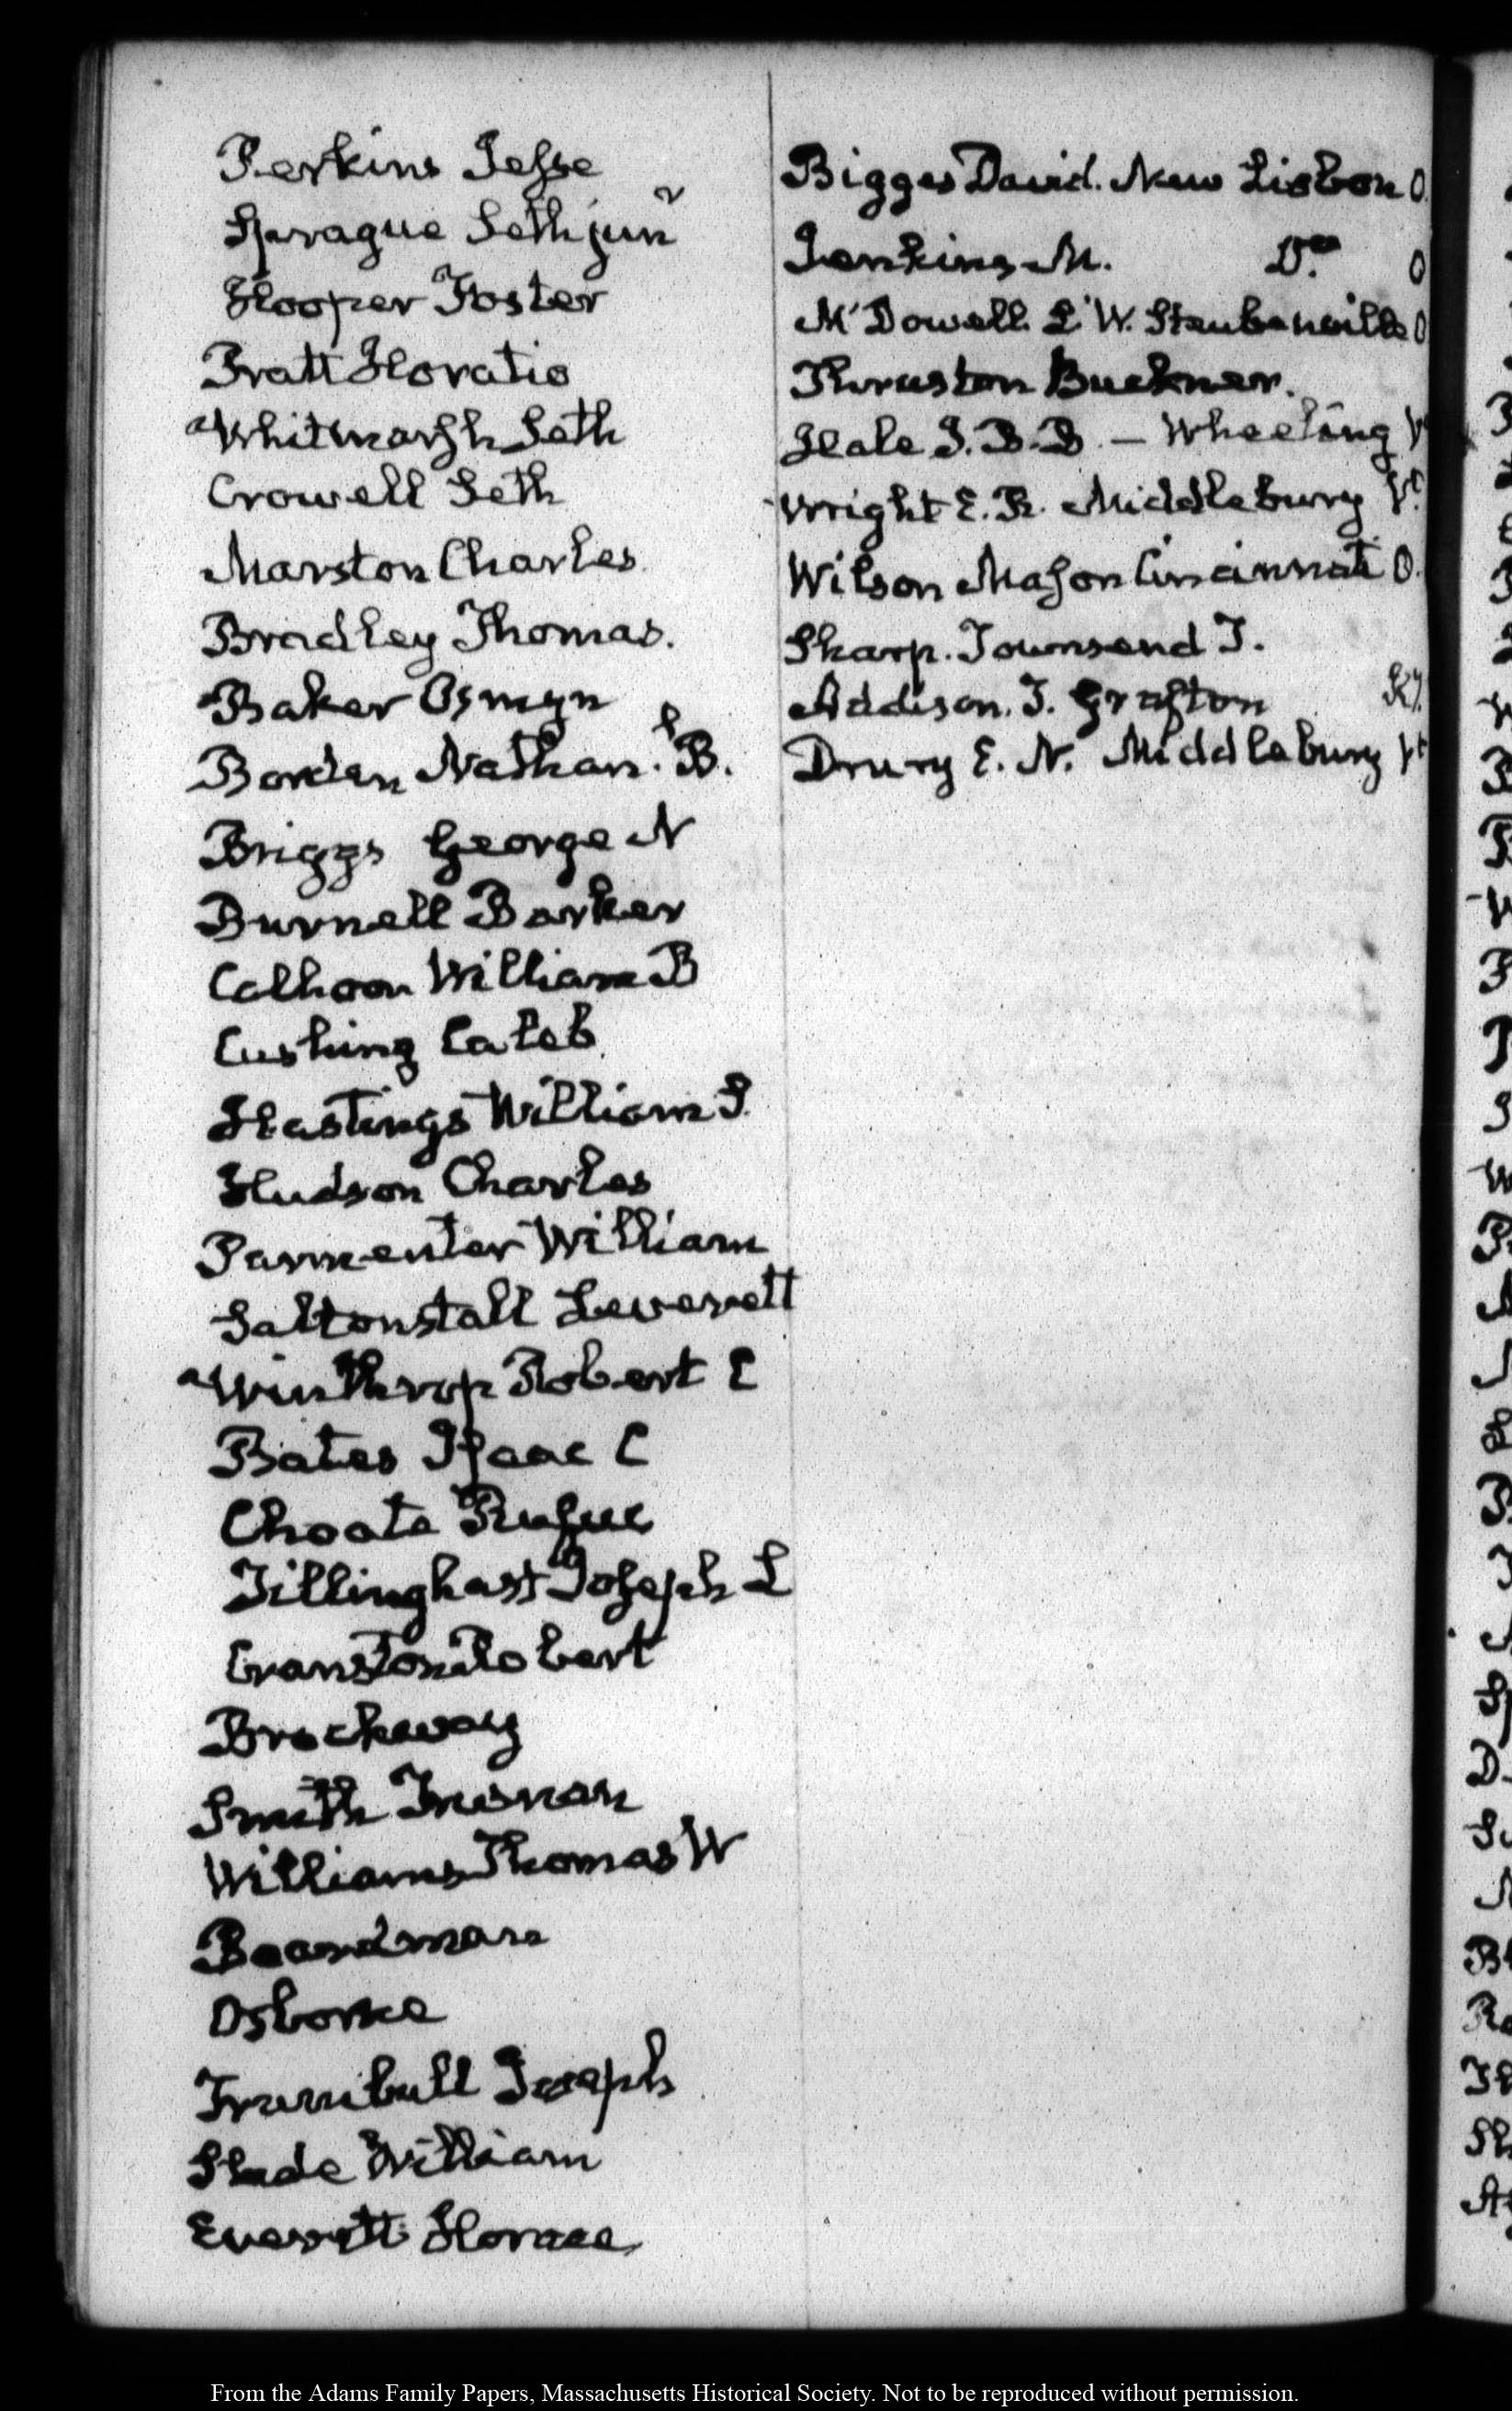 Perkins Jesse
Sprague Seth junr
Hooper Foster
Pratt Horatio
Whitmarsh Seth
Crowell Seth
Marston Charles
Bradley Thomas.
Baker Osmyn
Borden Nathanl. B.
Briggs George N
Burnell Barker
Calhoon William B
Cushing Caleb
Hastings William S.
Hudson Charles
Parmenter William
Saltonstall Leverett
Winthrop Robert C
Bates Isaac C
Choate Rufus
Tillinghast Joseph L
Cranston Robert
Brockway
Smith Truman
Williams Thomas W
Boardman
Osborne
Trumbull Joseph
Slade William
Everett Horace
Bigges David. New Lisbon O.
Jenkins M. Do. O
McDowell L W. Steubenville O
Thruston Buckner.
Hale J. B. B. — Wheeling V
Wright E. R. Middlebury Vt.
Wilson Mason Cincinnati O.
Sharp. Townsend T.
Addison. J. Grafton Ky.
Drury E. N. Middlebury Vt
From the Adams Family Papers, Massachusetts Historical Society. Not to be reproduced without permission.